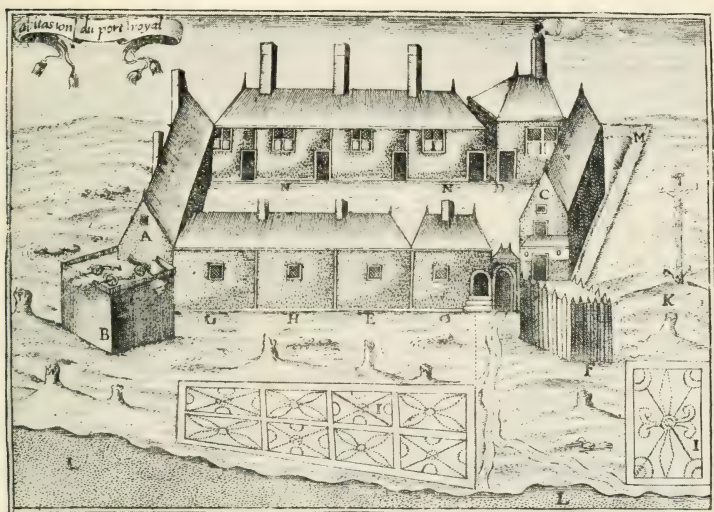 abitasion du port royal
M
N N D
C
A
K
B
G H E O
F
I
I
L
L